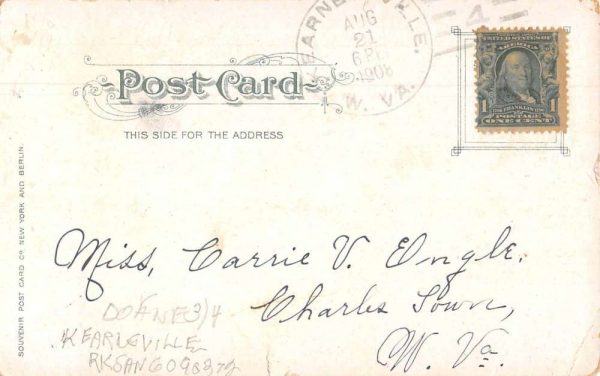 EARNE VILLE.
AUG
21
6 P
1906
W. VA.
4
UNITED STATES OF
AMERICA
1 1
FRANKLIN
POSTAGE
ONE CENT
Post Card
THIS SIDE FOR THE ADDRESS
SOUVENIR POST CARD CO. NEW YORK AND BERLIN.
Miss, Carrie V. Engle.
Charles Town,
W. Va.
DOANE 3/4
KEARNEVILLE